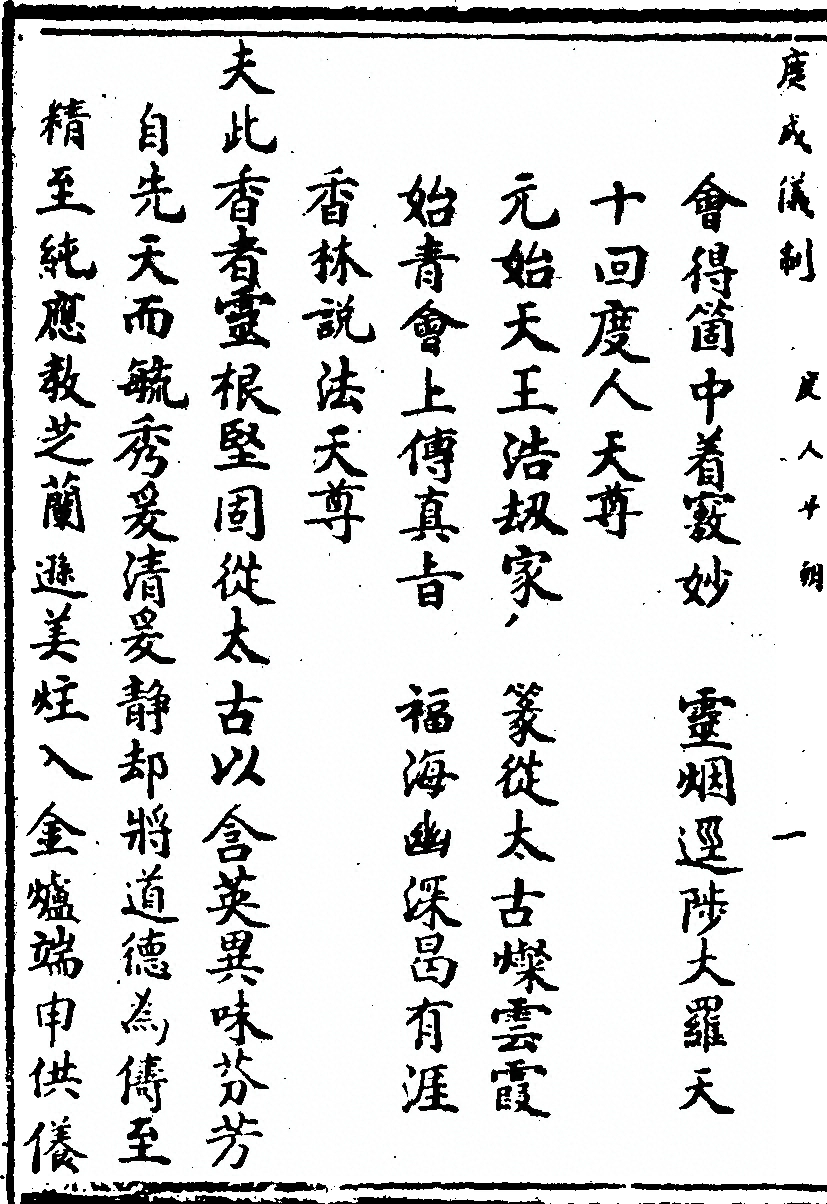 廣成儀制 一
會得箇中着竅妙 靈烟逕陟大羅天
十回度人天尊
元始天王浩刼家 篆從太古燦雲霞
始青會上傳真旨 福海幽深曷有涯
香林説法天尊
夫此香者靈根堅固從太古以含英異味芬芳
自先天而毓秀爰清爰静却將道德為儔至
精至純應教芝蘭遜美炷入金爐端申供儀